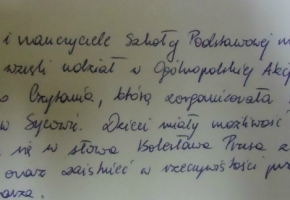 i nauczyciele Szkoły Podstawowej n
wzięli udział w Ogólnopolskiej Akcj
o Czytania, którą zorganizowała
w Sycowie. Dzieci miały możliwość
się w słowa Bolesława Prusa z
oraz zaistnieć w rzeczywistości